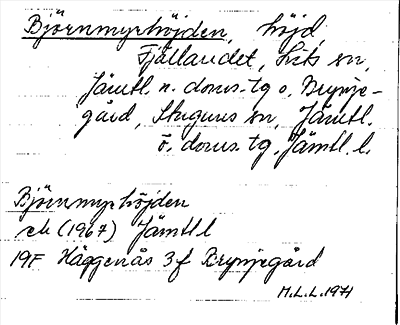 Björnmyrhöjden, höjd,
Fjällandet, Lits sn,
Jämtl. n. doms.tg o. Brynje-
gård, Stuguns sn, Jämtl.
ö. doms. tg. Jämtl. l.
Björnmyrhöjden
ek (1967) Jämtl l
19F Häggenås 3f Brynjegård
M.L.L. 1971